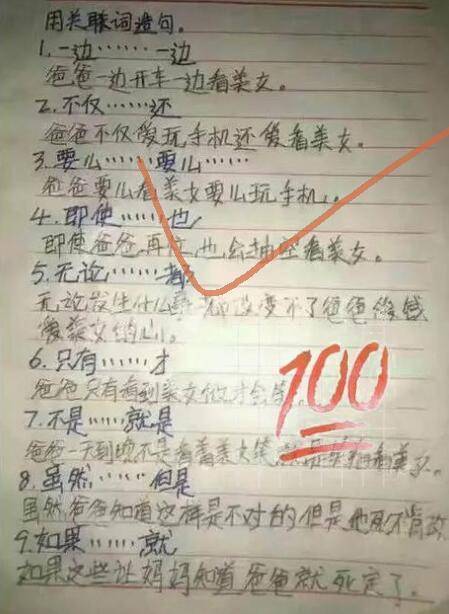 用关联词造句。
1.一边……一边
爸爸一边开车一边看美女。
2.不仅……还
爸爸不仅爱玩手机还爱看美女。
3.要么……要么……
爸爸要么看美女要么玩手机。
4.即使……也
即使爸爸再忙也会抽空看美女。
5.无论……都
无论发生什么事都改变不了爸爸
爱美女的心。
6.只有……才
爸爸只有看到美女他才会笑
7.不是……就是
爸爸一天到晚不是看着美女笑就是
8.虽然……但是
虽然爸爸知道这样是不对的但是他
9.如果……就
如果这些让妈妈知道爸爸就死定了。
100